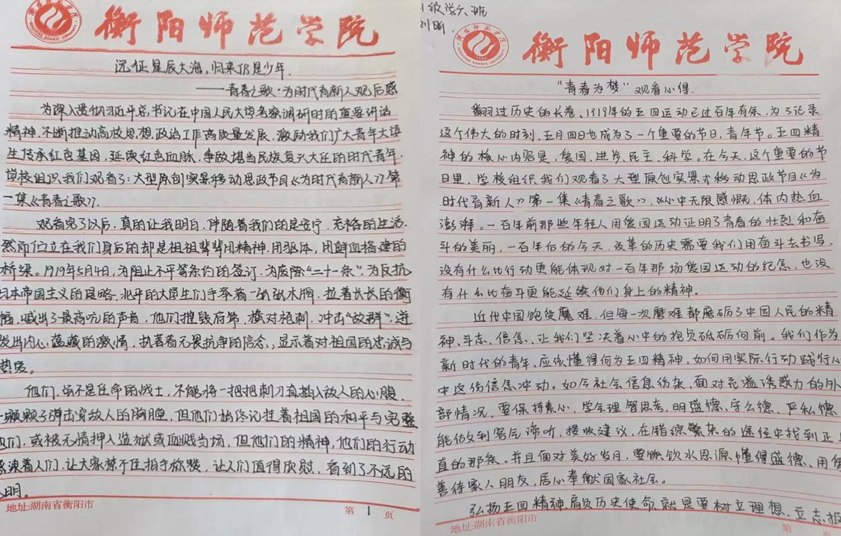 衡阳师范学院
远征星辰大海,归来仍是少年.
——青春之歌·为时代育新人观后感
为深入贯彻习近平总书记在中国人民大学考察调研时的重要讲话
精神,不断推动高校思想政治工作高质量发展,激励我们广大青年大学
生传承红色基因,延续红色血脉,争做堪当民族复兴大任的时代青年,
学校组织我们观看了:大型原创实景移动思政节目《为时代育新人》第
一集《青春之歌》.
观看完了以后,真的让我明白,伴随着我们的是安宁、充裕的生活,
然而伫立在我们身后的却是祖祖辈辈用精神,用躯体,用鲜血搭建的
桥梁。1919年5月4日,为阻止不平等条约的签订,为废除“二十一条”为反抗
日本帝国主义的侵略,北平的大学生们手举着一的纸木牌,拉着长长的衡
幅,喊出了最高亢的声音,他们推残府第,横对枪刺,冲击“敌群”,迸
发出内心,蕴藏的激情,执著着无畏抗争的信念,显示着对祖国的忠诚与
热度。
他们,虽不是任命的战士,不能将一把把刺刀直插入敌人的心腹,
一颗颗子弹击穿敌人的胸膛,但他们始终记挂着祖国的和平与完整
他们,或被无情押入监狱或血贱当场,但他们的精神,他们的行动
让大家禁不住拍手称赞,让人们值得庆慰,看到了不远的
明。
地址:湖南省衡阳市
第 1 页
衡阳师范学院
“青春为梦”观看心得.
翻过历史的长卷,1919年的五四运动已过百年有余,为了记录
这个伟大的时刻,五月四日也成为了一个重要的节日,青年节。五四精
神的核心内容是,爱国、进步、民主、科学。在今天,这个重要的节
日里,学校组织我们观看了大型原创实景式移动思政节目《为
时代育新人》第一集《青春之歌》,心中无限感慨,体内热血
澎湃。一百年前那些年轻人用爱国运动证明了青春的壮烈和奋
斗的美丽,一百年后的今天,改革的历史需要我们用奋斗去书写,
没有什么比行动更能体现对一百年那场爱国运动的纪念,也没
有什么比奋斗更能延续他们身上的精神。
近代中国饱受魔难,但每一次磨难都磨砺了中国人民的精
神、斗志、信念,让我们坚决着心中的抱负砥砺向前。我们作为
新时代的青年,应当懂得何为五四精神,如何用实际行动践行心
中这份信念冲动。如今社会信息纷杂,面对充满诱惑力的外
部情况,要保持素心,学会理智思考,明盛德、守公德、严私德
能做到客气谛听,接收建议,在错综繁杂的途径中找到正
直的那条。并且面对美好岁月,要吸饮水思源,懂得盛德,用
善待家人朋友,居心奉献国家社会。
弘扬五四精神,肩负历史使命,就是要树立理想,立志报
地址:湖南省衡阳市
第 页